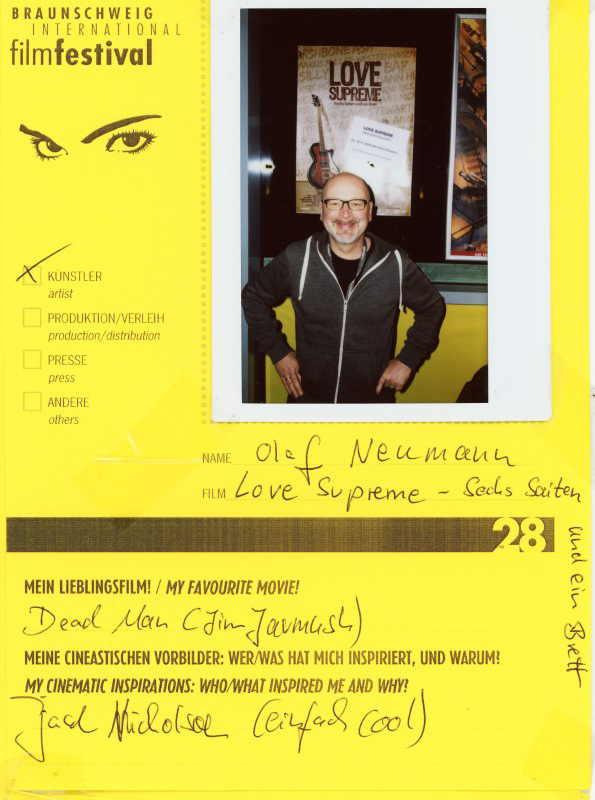 BRAUNSCHWEIG
INTERNATIONAL
filmfestival
LOVE
SUPREME
LOVE SUPREME
KÜNSTLER
artist
PRODUKTION/VERLEIH
production/distribution
PRESSE
press
ANDERE
others
NAME Olaf Neumann
FILM Love Supreme - Sechs Saiten
und ein Brett
28
MEIN LIEBLINGSFILM! / MY FAVOURITE MOVIE!
Dead Man (Jim Jarmush)
MEINE CINEASTISCHEN VORBILDER: WER/WAS HAT MICH INSPIRIERT, UND WARUM?
MY CINEMATIC INSPIRATIONS: WHO/WHAT INSPIRED ME AND WHY?
Jack Nicholson (einfach cool)